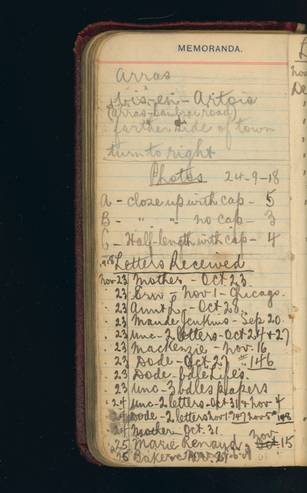 MEMORANDA.
Arras
en - Artois
(Arras - road)
farther side of town
turn to right
Photos 24-9-18
A - close up with cap - 5
B - " " no cap - 3
C - Half-length with cap - 4
1918 Letters Received
Nov 23 Mother - Oct 23
. 23 Erw - Nov 1 - Chicago
. 23 Aunt L - Oct 28
. 23 Maude Jenkins - Sep 20
. 23 Unc - 2 letters - Oct 24 & 27
. 23 MacKenzie - Nov. 16
. 23 Dode - Oct 29 # 146
. 23 Dode - bdle
. 23 Unc - 3 bdles papers
. 24 Unc - 2 letters - Oct 31 & Nov 4
. 24 Dode - 2 letters Nov 1 Nov 5 148
. 24 Mother - Oct. 31
. 25 Marie Renaud - Nov 15